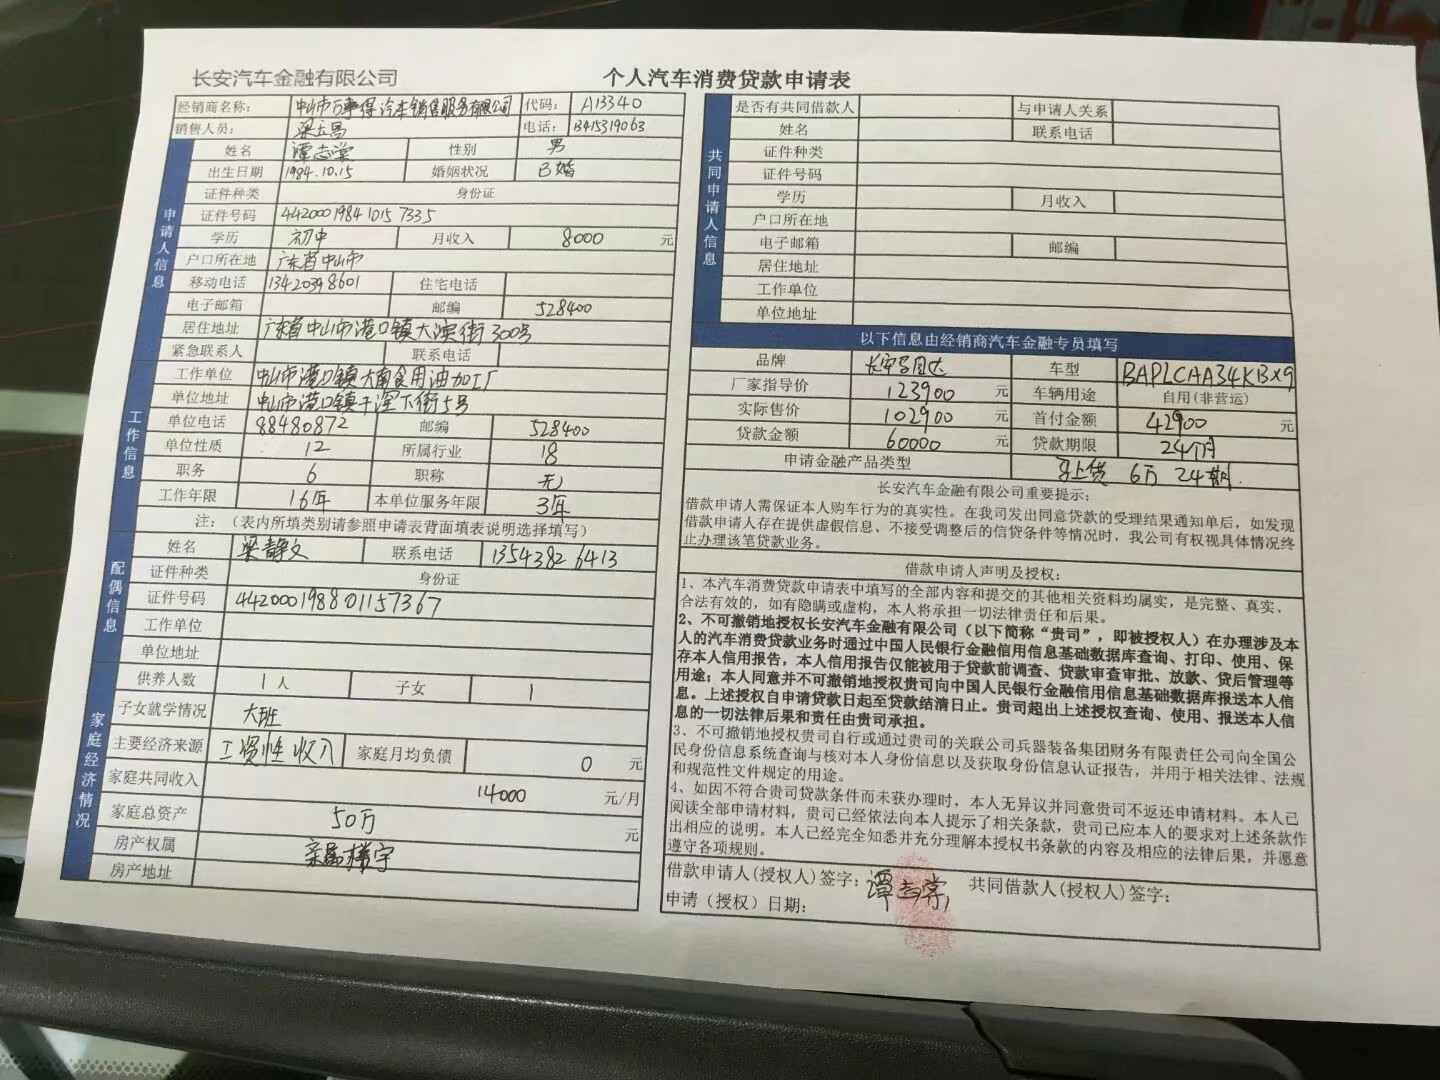 长安汽车金融有限公司
个人汽车消费贷款申请表
经销商名称: 中山市万事得汽车销售服务有限公司 代码: A13340
销售人员: 梁立昌 电话: 13415319063
申请人信息
姓名 谭志棠 性别 男
出生日期 1984.10.15 婚姻状况 已婚
证件种类 身份证
证件号码 442000198410157335
学历 初中 月收入 8000 元
户口所在地 广东省中山市
移动电话 13420398601 住宅电话
电子邮箱 邮编 528400
居住地址 广东省中山市港口镇大澳街300号
紧急联系人 联系电话
工作信息
工作单位 中山市港口镇大南食用油加工厂
单位地址 中山市港口镇下街5号
单位电话 88480872 邮编 528400
单位性质 12 所属行业 18
职务 6 职称 无
工作年限 16年 本单位服务年限 3年
注: (表内所填类别请参照申请表背面填表说明选择填写)
配偶信息
姓名 梁静文 联系电话 13543826413
证件种类 身份证
证件号码 442000198801157367
工作单位
单位地址
家庭经济情况
供养人数 1人 子女 1
子女就学情况 大班
主要经济来源 工资性收入 家庭月均负债 0 元
家庭共同收入 14000 元/月
家庭总资产 50万 元
房产权属
房产地址
共同申请人信息
是否有共同借款人 与申请人关系
姓名 联系电话
证件种类
证件号码
学历 月收入
户口所在地
电子邮箱 邮编
居住地址
工作单位
单位地址
以下信息由经销商汽车金融专员填写
品牌 长安 车型 BAPLCAA34KBX9
厂家指导价 123900 元 车辆用途 自用(非营运)
实际售价 102900 元 首付金额 42900 元
贷款金额 60000 元 贷款期限 24个月
申请金融产品类型 马上贷 6万 24期.
长安汽车金融有限公司重要提示:
借款申请人需保证本人购车行为的真实性。在我司发出同意贷款的受理结果通知单后，如发现
借款申请人存在提供虚假信息、不接受调整后的信贷条件等情况时，我公司有权视具体情况终
止办理该笔贷款业务。
借款申请人声明及授权:
1、本汽车消费贷款申请表中填写的全部内容和提交的其他相关资料均属实，是完整、真实、
合法有效的，如有隐瞒或虚构，本人将承担一切法律责任和后果。
2、不可撤销地授权长安汽车金融有限公司（以下简称“贵司”，即被授权人）在办理涉及本
人的汽车消费贷款业务时通过中国人民银行金融信用信息基础数据库查询、打印、使用、保
存本人信用报告，本人信用报告仅能被用于贷款前调查、贷款审查审批、放款、贷后管理等
用途；本人同意并不可撤销地授权贵司向中国人民银行金融信用信息基础数据库报送本人信
息。上述授权自申请贷款日起至贷款结清日止。贵司超出上述授权查询、使用、报送本人信
息的一切法律后果和责任由贵司承担。
3、不可撤销地授权贵司自行或通过贵司的关联公司兵器装备集团财务有限责任公司向全国公
民身份信息系统查询与核对本人身份信息以及获取身份信息认证报告，并用于相关法律、法规
和规范性文件规定的用途。
4、如因不符合贵司贷款条件而未获办理时，本人无异议并同意贵司不返还申请材料。本人已
阅读全部申请材料，贵司已经依法向本人提示了相关条款，贵司已应本人的要求对上述条款作
出相应的说明。本人已经完全知悉并充分理解本授权书条款的内容及相应的法律后果，并愿意
遵守各项规则。
借款申请人(授权人)签字: 谭志棠 共同借款人(授权人)签字:
申请（授权）日期: